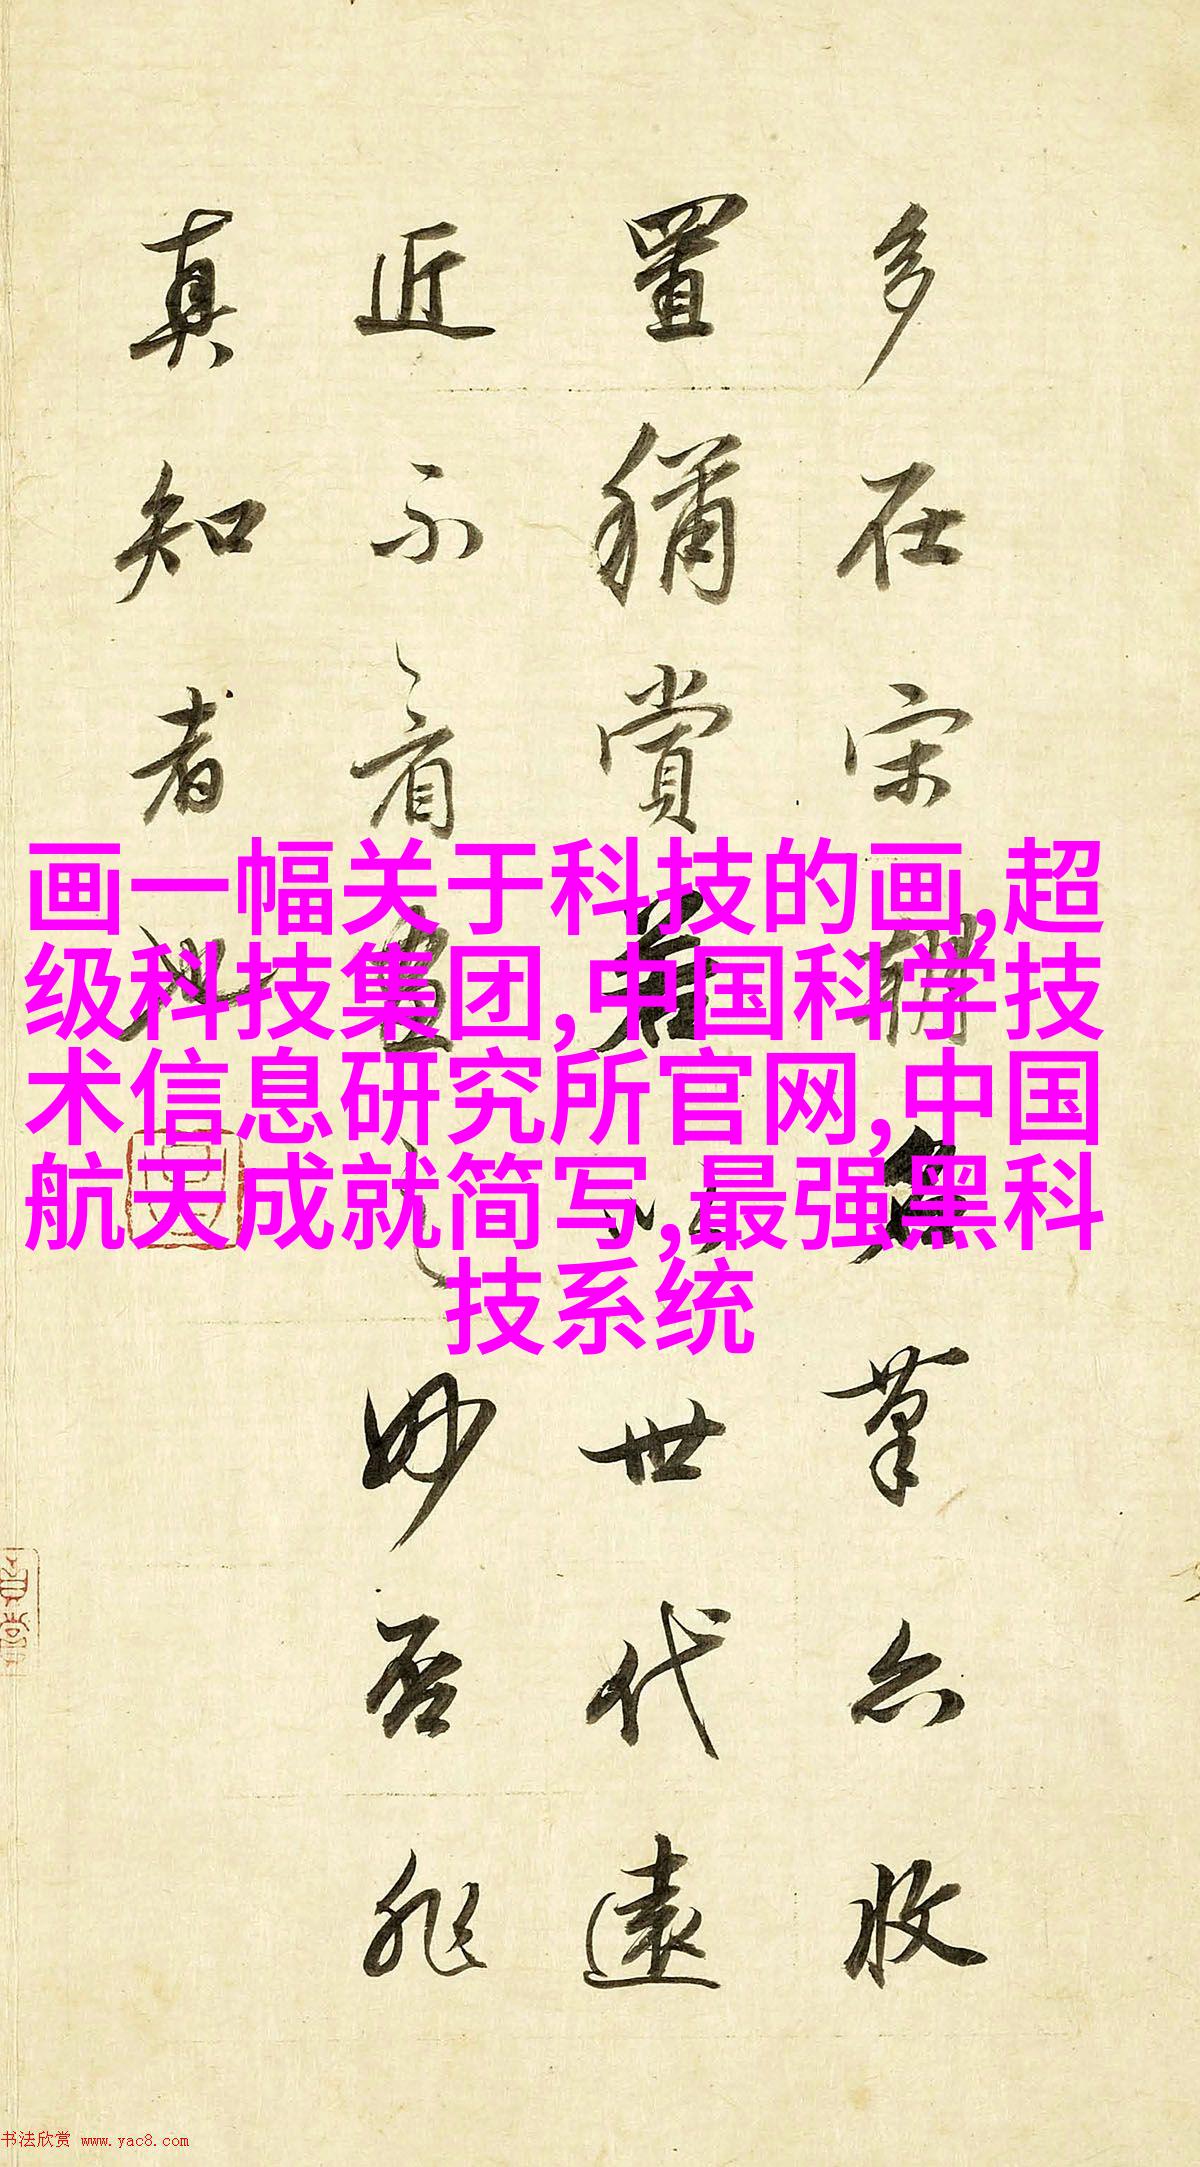 多在宋朝名筆亦收
置猶賞若以世代遠
近不看畫之妙否非
真知者也
画一幅关于科技的画,超
级科技集团,中国科学技
术信息研究所官网,中国
航天成就简写,最强黑科
技系统
书法欣赏 www.yac8.com